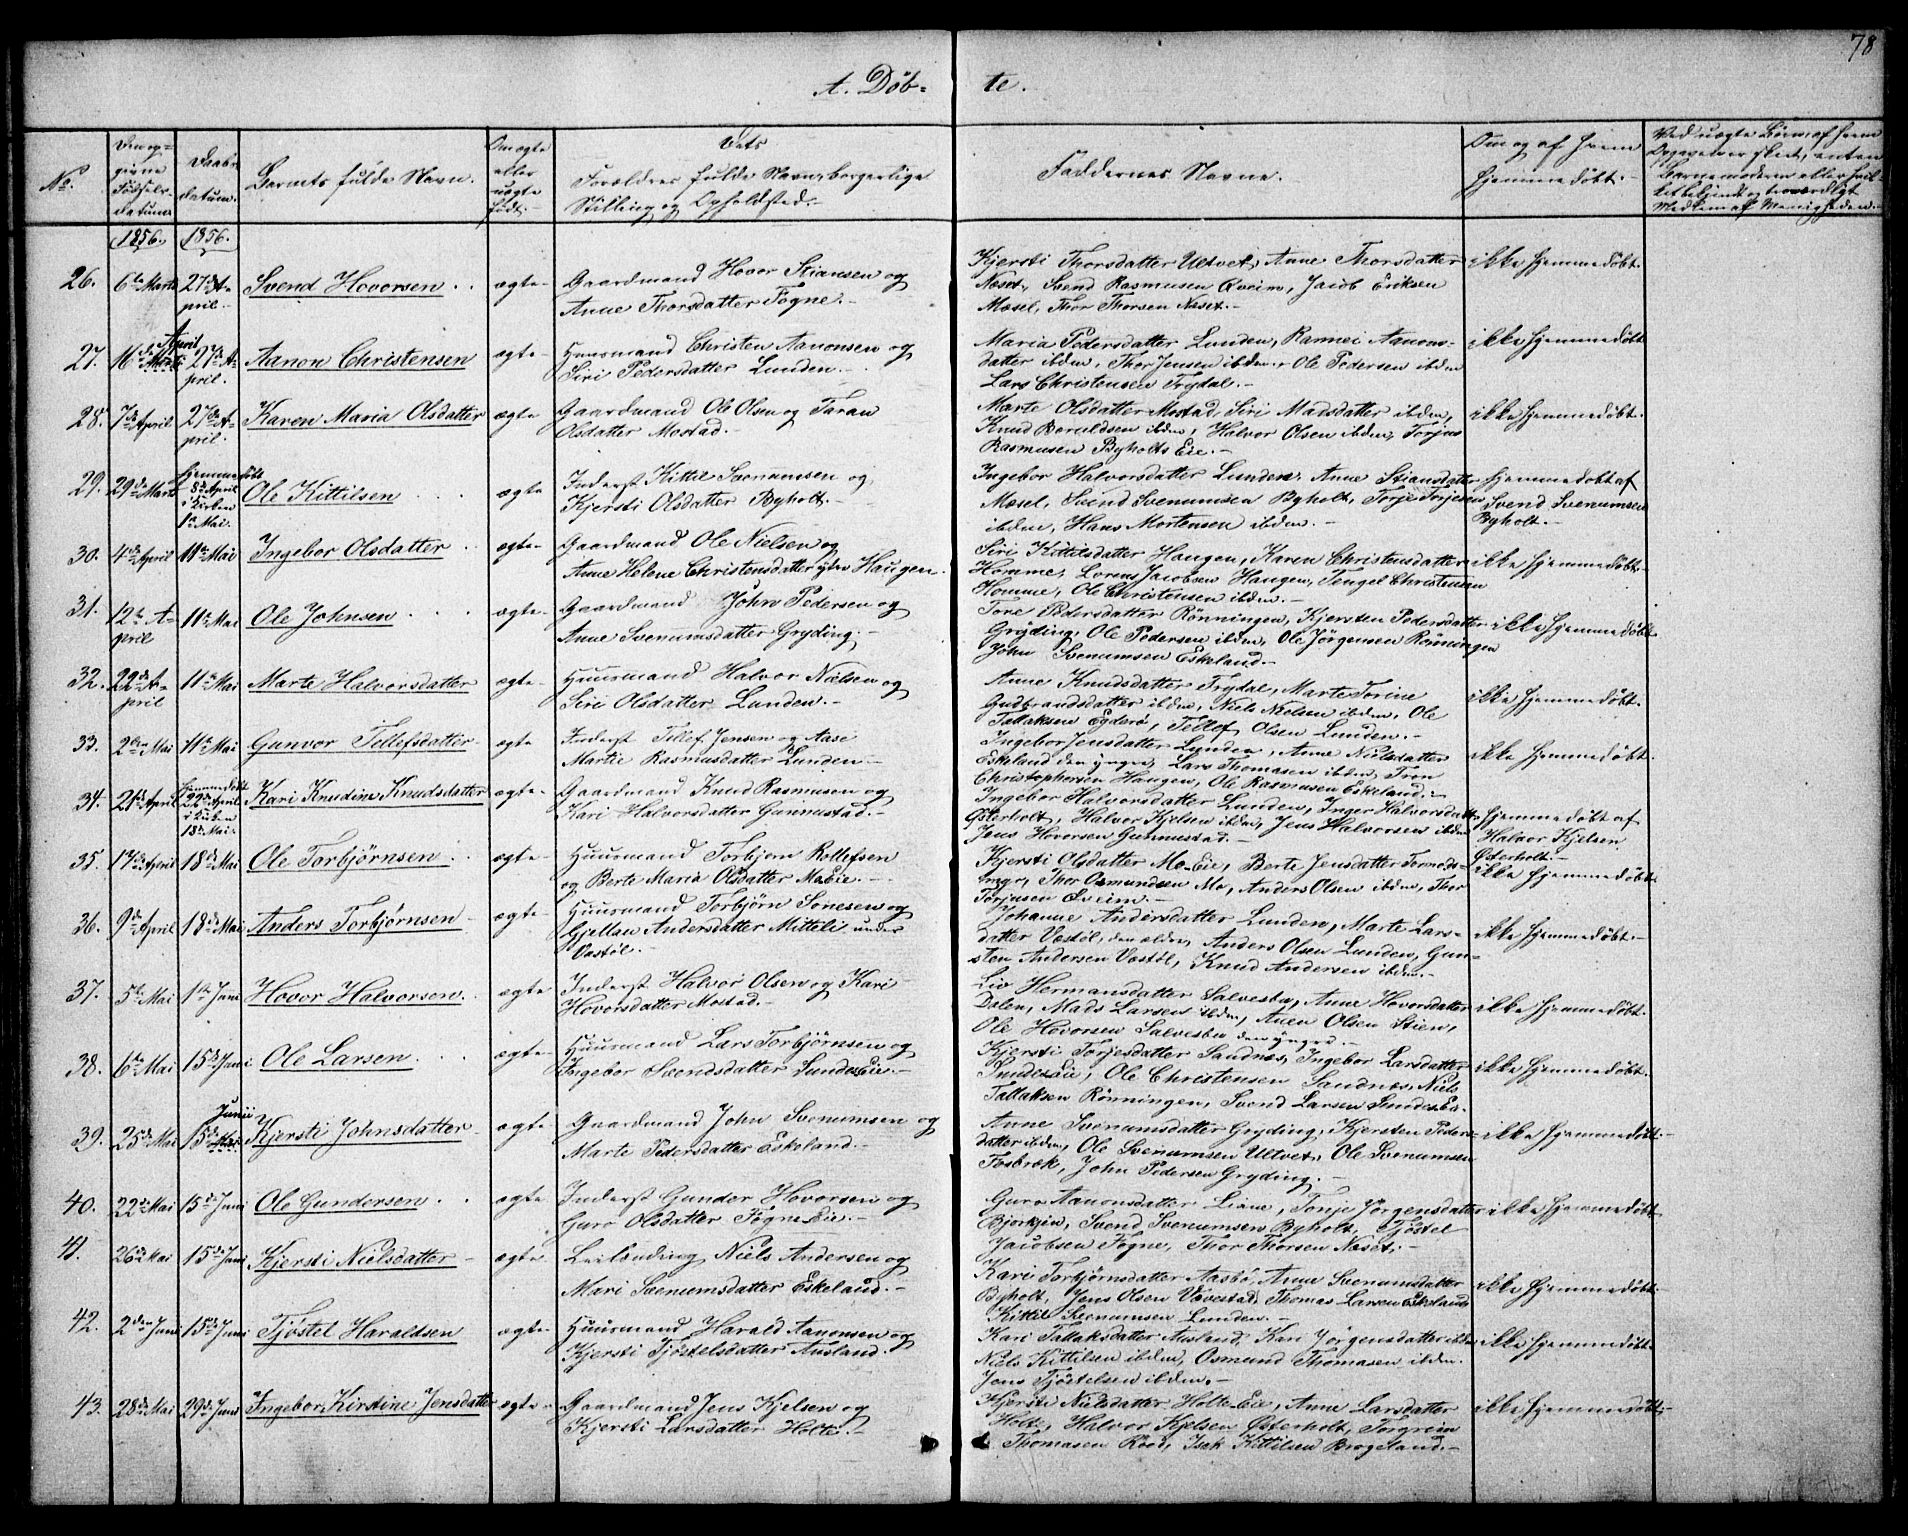 78
A. Döb-
te.
No.
Den op-
givne
Födsels-
datum
Daabs-
datum.
Barnets fulde Navn.
Om ægte
eller
uægte
födt.
Dets
Forældres fulde Navn, borgerlige
Stilling og Opholdsted.
Faddernes Navne.
Om og af hvem
hjemmedöbt.
Ved uægte Börn, af hvem
Opgavelser skede, enten
Barnemoderen eller hvil-
ket bekjendt og troværdigt
Medlem af Menigheden.
1856.
1856.
26.
6te Marts
27de A-
pril.
Svend Hovorsen
ægte
Gaardmand Hovor Stiansen og
Anne Thorsdatter Fögne.
Kjersti Thorsdatter Ultvet, Anne Thorsdatter
Næset, Svend Rasmusen Qveim, Jacob Eriksen
Mæsel, Thor Thorsen Næset.
ikke hjemmedöbt.
27.
April
16de Marts
27de A-
pril.
Aanon Christensen
ægte
Huusmand Christen Aanonsen og
Siri Pedersdatter Lunden.
Maria Pedersdatter Lunden, Rannei Aanons-
datter ibdm, Thor Jensen ibdm, Ole Pedersen ibdm
Lars Christensen Trydal.
ikke hjemmedöbt
28.
7de April
27de A-
pril.
Karen Maria Olsdatter
ægte
Gaardmand Ole Olsen og Taran
Olsdatter Mostad.
Marte Olsdatter Mostad, Siri Madsdatter ibdm,
Knud Boruldsen ibdm, Halvor Olsen ibdm, Torjus
Rasmusen Byholts Eie.
ikke hjemmedöbt.
29.
29de Marts
hjemmedöbt
8de April
i Kirken
1te Mai.
Ole Kittilsen
ægte
Inderst Kittil Svenumsen og
Kjersti Olsdatter Byholt.
Ingebor Halvorsdatter Lunden, Anne Stiansdatter
Mæsel, Svend Svenumsen Byholt, Torje Torjesen
ibdm, Hans Mortensen ibdm.
hjemmedöbt af
Svend Svenumsen
Byholt.
30.
4de April
11te Mai
Ingebor Olsdatter
ægte
Gaardmand Ole Nielsen og
Anne Helene Christensdatter ytre Haugen.
Siri Kittilsdatter Haugen, Karen Christensdatter
Homme, Lorens Jacobsen Haugen, Tengel Christensen
Homme, Ole Christensen ibdm.
ikke hjemmedöbt.
31.
12te A-
pril
11te Mai
Ole Johnsen
ægte
Gaardmand John Pedersen og
Anne Svenumsdatter Gryding.
Tone Pedersdatter Rönningen, Kjersten Pedersdatter
Gryding, Ole Pedersen ibdm, Ole Jörgensen Rönningen
John Svenumsen Eskeland.
ikke hjemmedöbt
32.
22de A-
pril
11te Mai
Marte Halvorsdatter
ægte
Huusmand Halvor Nielsen og
Siri Olsdatter Lunden.
Anne Knudsdatter Trydal, Marte Torine
Gudbrandsdatter ibdm, Niels Nielsen ibdm, Ole
Tallaksen Egderö, Tellef Olsen Lunden.
ikke hjemmedöbt.
33.
2den Mai
11te Mai
Gunvor Tellefsdatter
ægte
Inderst Tellef Jensen og Aase
Martie Rasmusdatter Lunden
Ingebor Jensdatter Lunden, Anne Nielsdatter
Eskeland den yngre, Lars Thomasen ibdm, Tron
Christophersen Haugen, Ole Rasmusen Eskeland.
ikke hjemmedöbt.
34.
21de April
hjemmedöbt
22de April
i Kirken
18de Mai.
Kari Knudine Knudsdatter
ægte
Gaardmand Knud Rasmusen og
Kari Halvorsdatter Gunmestad.
Ingebor Halvorsdatter Lunden, Inger Halvorsdatter
Österholt, Halvor Kjelsen ibdm, Jens Halvorsen ibdm
Jens Hovorsen Gunmestad.
hjemmedöbt af
Halvor Kjelsen
Österholt.
35.
17de April
18de Mai
Ole Torbjörnsen
ægte
Huusmand Torbjörn Rollefsen
og Berte Maria Olsdatter Mo Eie.
Kjersti Olsdatter Mo Eie, Berte Jensdatter
Thor Osmundsen Mo, Anders Olsen ibdm, Thor
Torjusen Qveim.
ikke hjemmedöbt
36.
9de April
18de Mai
Anders Torbjörnsen
ægte
Huusmand Torbjörn Sönesen og
Gjellau Andersdatter Mitteli under
Vastöl.
Johanne Andersdatter Lunden, Marte Lars-
datter Vastöl, den ældre, Anders Olsen Lunden, Gun-
sten Andersen Vastöl, Knud Andersen ibdm.
ikke hjemmedöbt.
37.
5te Mai
1te Juni
Hovor Halvorsen
ægte
Inderst Halvor Olsen og Kari
Hovorsdatter Mostad.
Liv Hermansdatter Salvesbu, Anne Hovorsdatter
Dalen, Mads Larsen ibdm, Aven Olsen Stien,
Ole Hovorsen Salvesbu den yngre.
ikke hjemmedöbt.
38.
6te Mai
15de Juni
Ole Larsen
ægte
Huusmand Lars Torbjörnsen og
Ingebor Svendsdatter Sundes Eie.
Kjersti Torjesdatter Sandnæs, Ingebor Larsdatter
Sundes Eie, Ole Christensen Sandnæs, Niels
Tallaksen Rönningen, Svend Larsen Sundes Ei.
ikke hjemmedöbt.
39.
25de Mai
Junii
15de Mai
Kjersti Johnsdatter
ægte
Gaardmand John Svenumsen og
Marte Pedersdatter Eskeland.
Anne Svenumsdatter Gryding, Kjersten Peders-
datter ibdm, Ole Svenumsen Ultvet, Ole Svenumsen
Fosbræk, John Pedersen Gryding.
ikke hjemmedöbt.
40.
22de Mai
15de Juni
Ole Gundersen
ægte
Inderst Gunder Hovorsen og
Guro Olsdatter Fögne Eie.
Guro Aanonsdatter Liane, Tonje Jörgensdatter
Bjorkjin, Svend Svenumsen Byholt, Tjöstel
Jacobsen Fögne, Thor Thorsen Næset.
ikke hjemmedöbt
41.
26de Mai
15de Juni
Kjersti Nielsdatter
ægte
Leilænding Niels Andersen og
Mari Svenumsdatter Eskeland.
Kari Torbjörnsdatter Aasbö, Anne Svenumsdatter
Byholt, Jens Olsen Vævestad, Thomas Larsen Eskeland
Kittil Svenumsen Lunden.
ikke hjemmedöbt.
42.
2den Juni
15de Juni
Tjöstel Haraldsen
ægte
Huusmand Harald Aanonsen og
Kjersti Tjöstelsdatter Ausland.
Kari Tallaksdatter Ausland, Kari Jörgensdatter ibdm
Niels Kittilsen ibdm, Osmund Thomasen ibdm.
Jens Tjöstelsen ibdm.
ikke hjemmedöbt.
43.
28de Mai
29de Juni
Ingebor Kirstine Jensdatter
ægte
Gaardmand Jens Kjelsen og
Kjersti Larsdatter Holte.
Kjersti Nielsdatter Holte Eie, Anne Larsdatter
Holte, Halvor Kjelsen Österholt, Torgrim
Thomasen Röed, Isak Kittilsen Brogeland.
ikke hjemmedöbt.